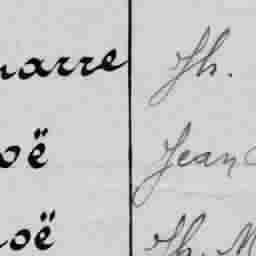 narre Jh.
oë Jean
oë Jh. M